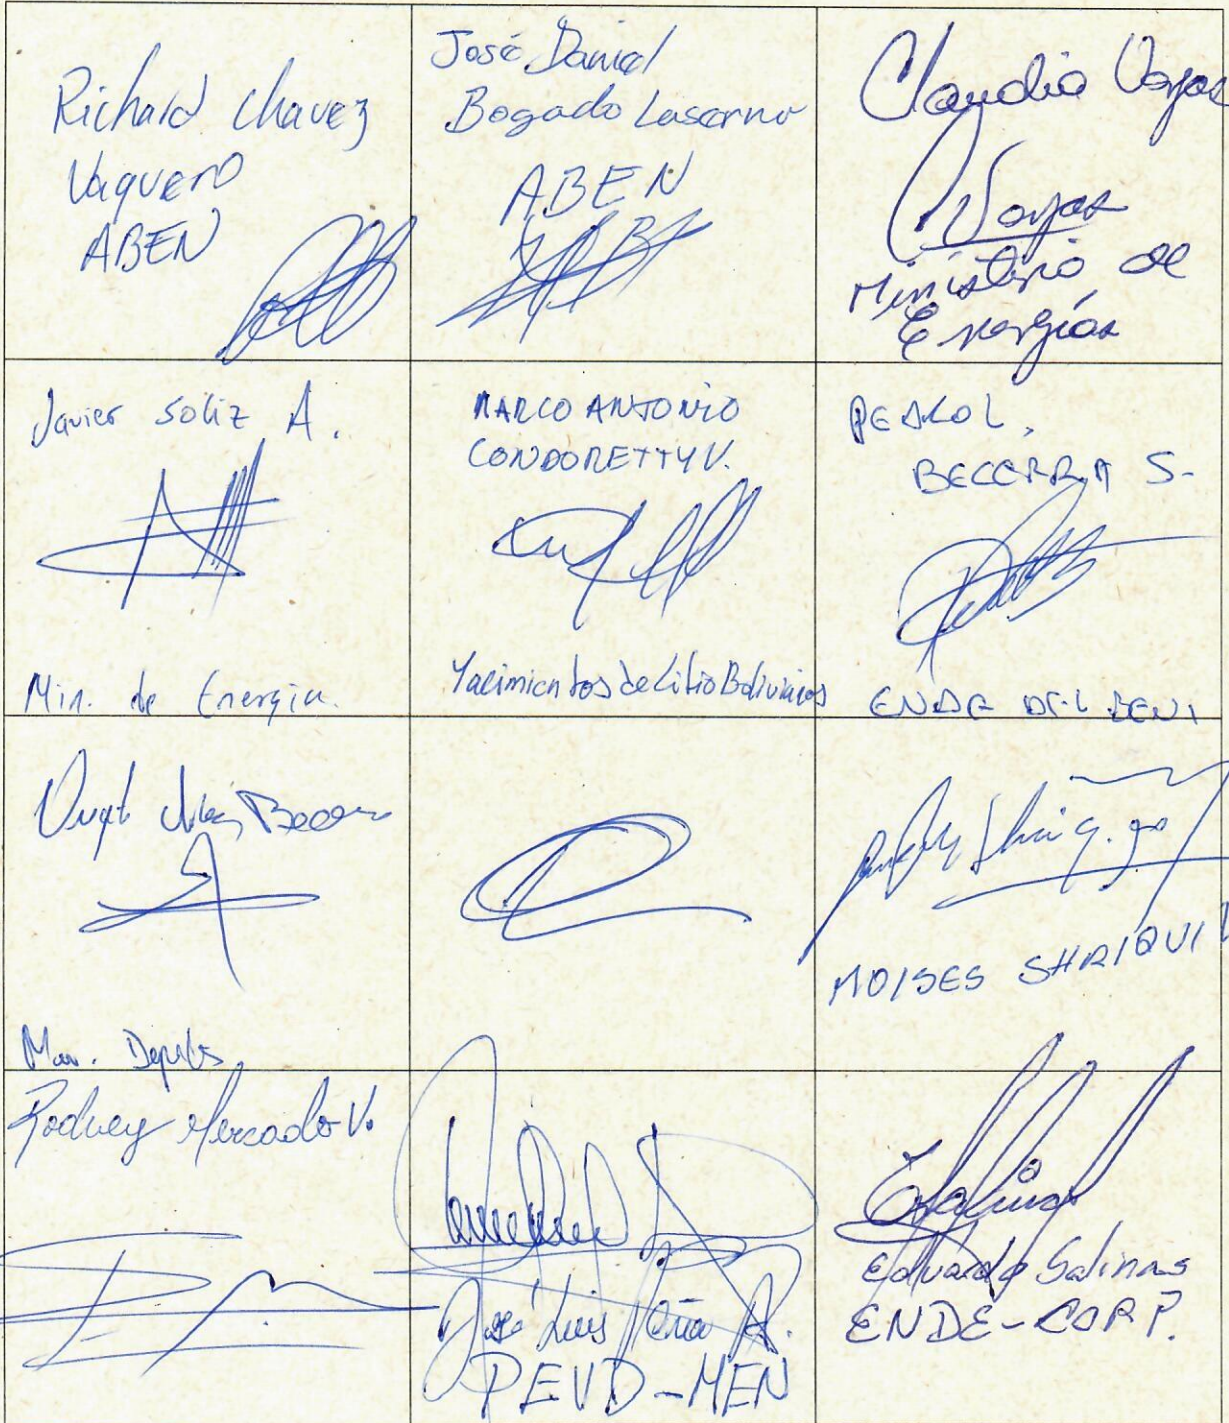 Richard Chavez
Vaquero
ABEN
José Daniel
Bogado Lascano
ABEN
Claudia Vargas
CVargas
Ministerio de
Energías
Javier Soliz A.
Min. de Energía.
MARCO ANTONIO
CONDORETTY V.
Yacimientos de Litio Bolivianos
PEDRO L.
BECERRA S.
ENDE DEL BENI
MOISES SHRIQUI
Rodney Mercado V.
José Luis Peña A.
PEVD-MEN
Eduardo Salinas
ENDE-CORP.